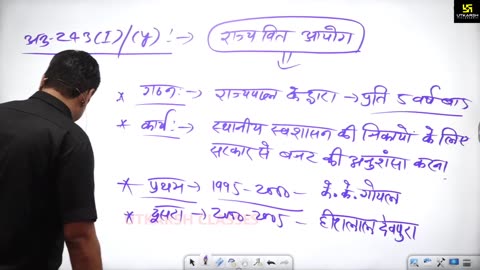 UTKARSH
अनु-243(I)/(Y) :→ राज्य वित्त आयोग
* गठन:→ राज्यपाल के द्वारा → प्रति 5 वर्ष बाद
* कार्य:→ स्थानीय स्वशासन की निकायो के लिए
सरकार से बजट की अनुशंसा करना।
* प्रथम → 1995-2000 – के. के. गोयल
* दूसरा → 2000-2005 – हीरालाल देवपुरा
UTKARSH CLASSES